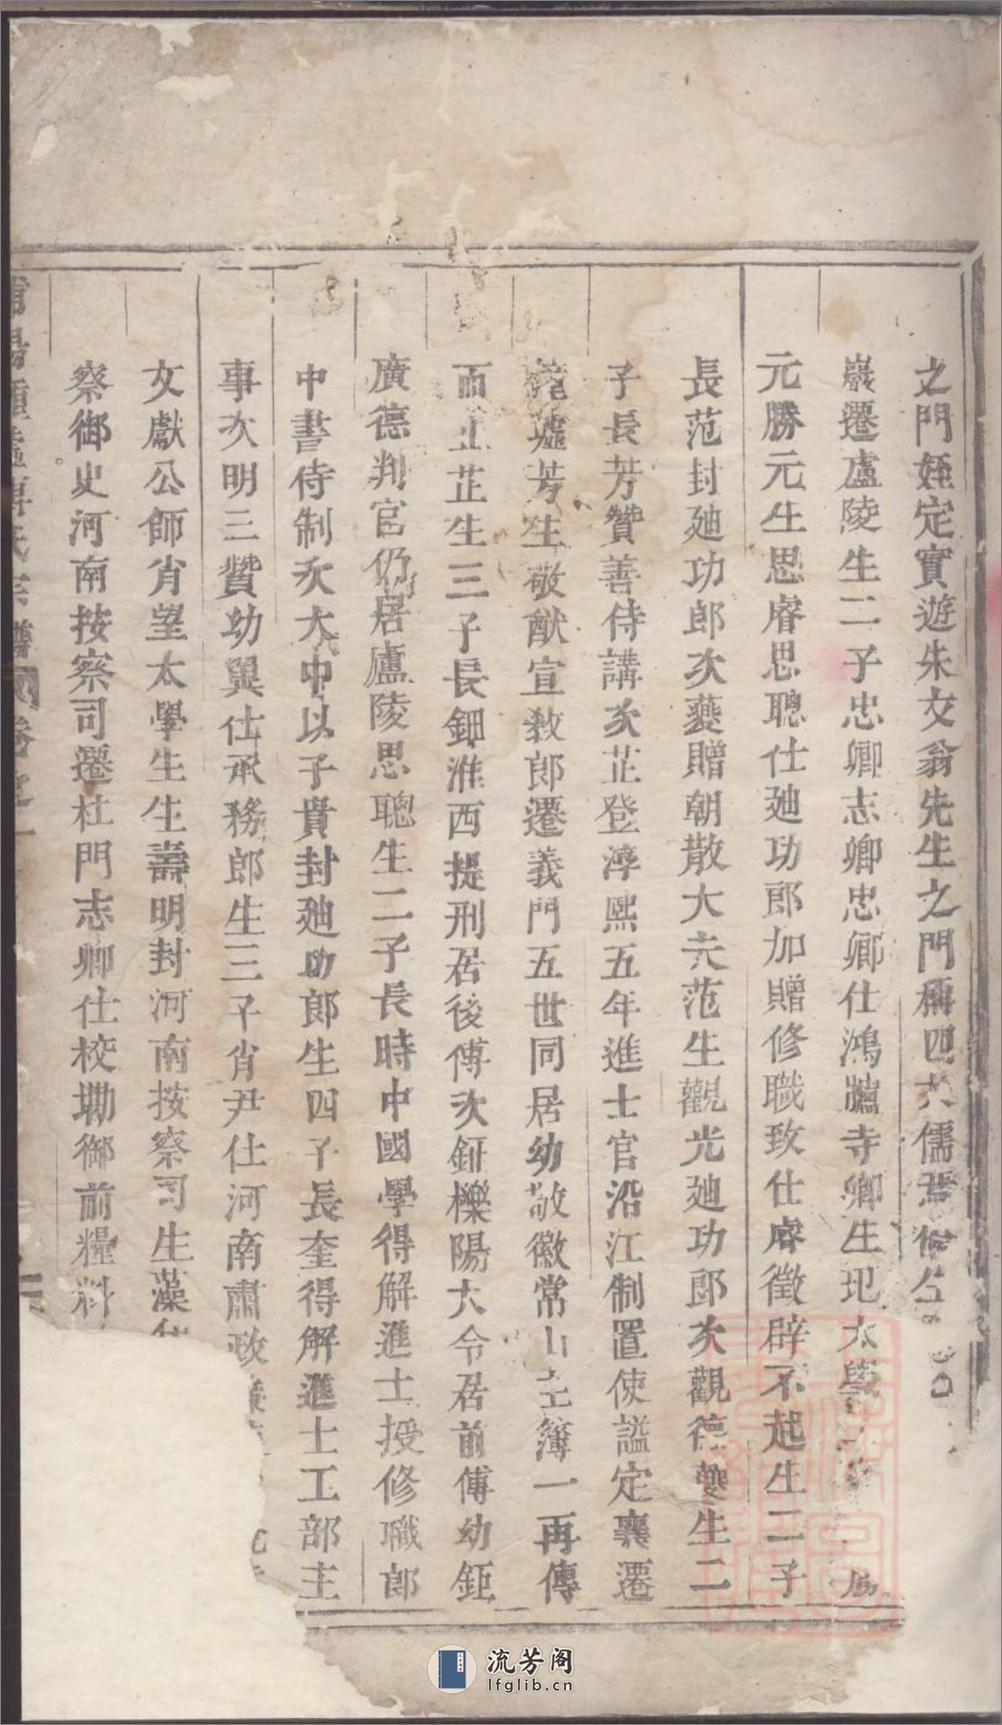 之門姪定實遊朱文翁先生之門稱四大儒焉
巖遷盧陵生二子忠卿志卿忠卿仕鴻臚寺卿生玘太學
元勝元生思睿思聰仕廸功郎加贈修職致仕睿徵辟不起生二子
長范封廸功郎次藝贈朝散大夫范生觀光廸功郎次觀德夔生二
子長芳贊善侍講次芷登淳熙五年進士官沿江制置使諡定襄遷
墟芳生敬猷宣教郎遷義門五世同居幼敬徽常山主簿一再傳
而止芷生三子長鈿淮西提刑居後傅次鉦櫟陽大令居前傅幼鉅
廣德判官仍居盧陵思聰生二子長時中國學得解進士授修職郎
中書侍制次大中以子貴封廸功郎生四子長奎得解進士工部主
事次明三贊幼翼仕承務郎生三子肖尹仕河南肅政
文獻公師肖望太學生生壽明封河南按察司生藻
察御史河南按察司遷杜門志卿仕校勘御前糧料
傅氏宗譜 卷之一
流芳阁
lfglib.cn